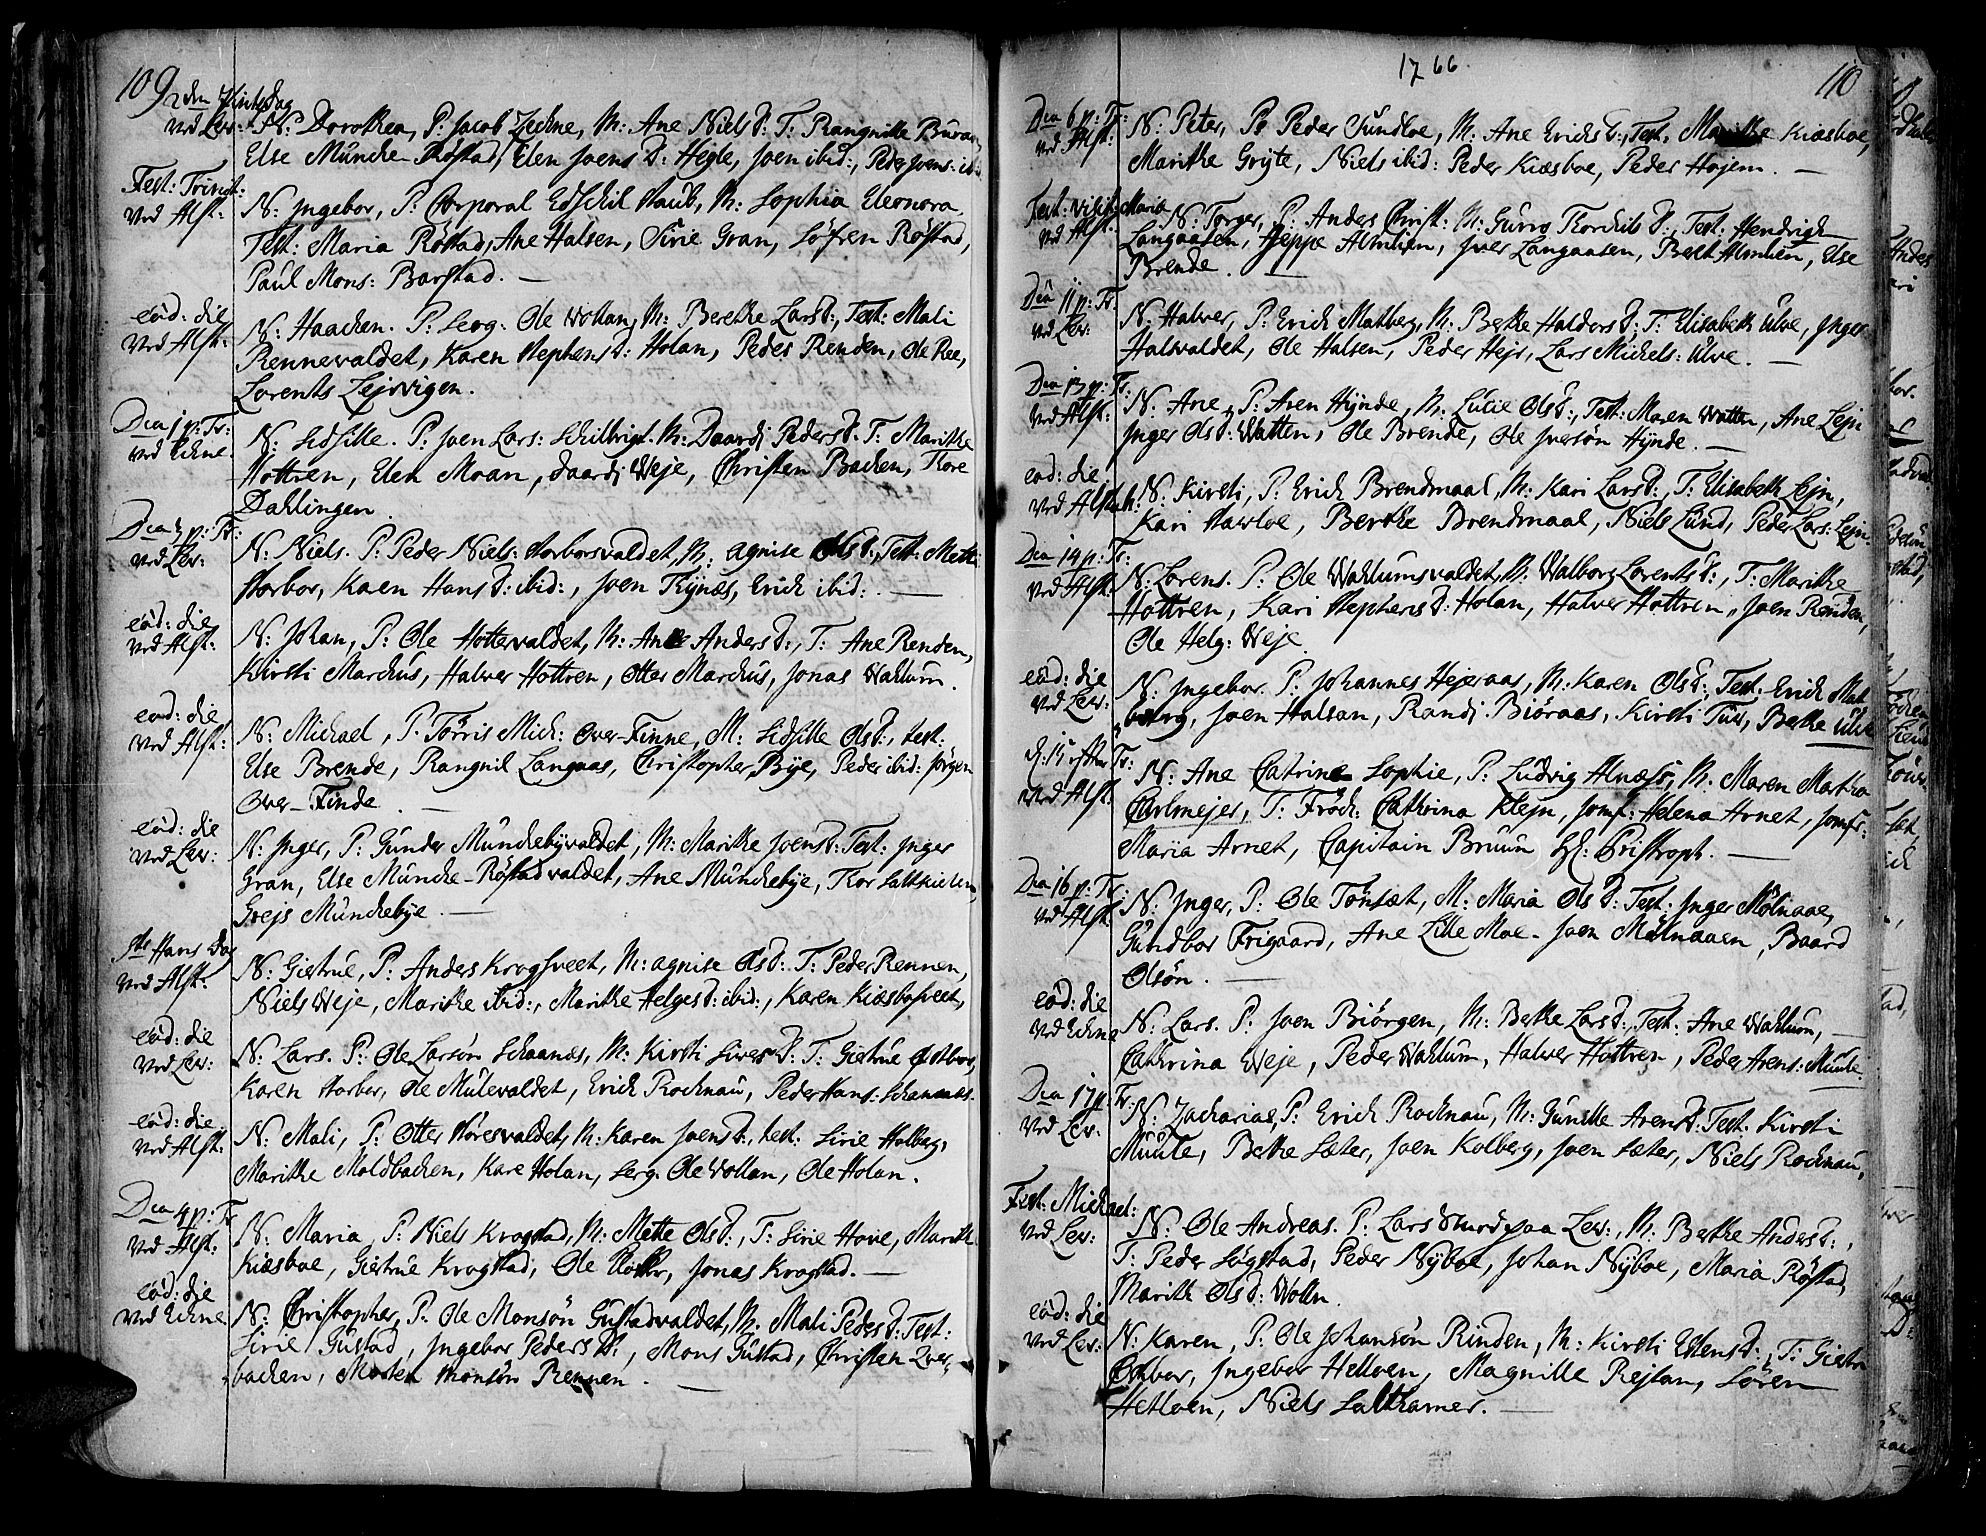 109
2den Pintsdag
Ved Lev: N: Dorothea, P: Jacob Zechne, M: Ane Niels D: T: Rangnille
Else Müncke-Røstad, Elen Joens D: Hegle, Joen ibid:, Peder Joens: ibid
Fest: Trinit:
Ved Alst: N: Ingebor, P: Corporal Edschil Staub, M: Sophia Eleonora.
Test: Maria Røstad, Ane Halsen, Sirie Gran, Søfren Røstad,
Paul Mons: Barstad. —
eod: die
Ved Alst: N: Haachen. P: Serg: Ole Wollan, M: Berethe Lars D:, Test: Mali
Rennevaldet, Karen Stephens D: Holan, Peder Renden, Ole Ree,
Lorents Lejrvigen.
Dca 1 p: Tr:
Ved Eckne. N: Sidsille. P: Joen Lars: M: Daardj Peders D. T: Marithe
Hottren, Elen Moan, Daardj Weje, Christen Bachen, Tore
Dahlingen.
Dca 3 p: Tr:
Ved Lev: N: Niels. P: Peder Niels: Storborsvaldet, M: Agnise Ols D:, Test: Mette
Storbor, Karen Hans D: ibid:, Joen Thynæs, Erich ibid: . —
eod: die
Ved Alst: N: Johan, P: Ole Hottervaldet, M: Ane Anders D:, T: Ane Renden,
Kirsti Marchus, Halver Hottren, Otter Marchus, Jonas Wahlum.
eod: die
Ved Alst: N: Michael, P: Tørris Mich: Over-Finne, M: Sidsille Ols D:, test:
Else Brende, Rangnil Langaas, Christopher Bye, Peder ibid: Jørgen
Over-Finde. —
eod: die
Ved Lev: N: Inger, P: Gunder Münckebyvaldet, M: Marithe Joens D: Test: Inger
Gran, Else Müncke-Røstadvaldet, Ane Münckebye, Tor
Grejs Münckebye. —
Sts Hans Dag
Ved Alst: N: Giertrue, P: Anders Krogsveet, M: Agnise Ols D: T: Peder Rennen,
Niels Weje, Marithe ibid:, Marithe Helges D: ibid:, Karen Kiæsbosveet,
eod: die
Ved Lev: N: Lars. P: Ole Larsøn Schaanæs, M: Kirsti Sivers D: T: Giertrue Østbor,
Karen Storbor, Ole Mülevaldet, Erich Rochnau, Peder Hans: Schaanæs.
eod: die
Ved Alst: N: Mali, P: Otter Støresvaldet, M: Karen Joens D:, test: Sirie Holberg,
Marithe Moldbachen, Kare Holan, Serg: Ole Wollan, Ole Holan.
Dca 4 p: Tr
Ved Alst: N: Maria, P: Niels Krogstad, M: Mette Ols D:, T: Sirie Hove, Marith
Kiæsboe, Giertrue Krogstad, Ole, Jonas Krogstad. —
eod: die
Ved Eckne N: Christopher, P: Ole Monsøn Gustadvaldet, M: Mali Peders D: Test:
Sirie Gustad, Ingebor Peders D:, Mons Gustad, Christen Over
bachen, Morten Monsøn Rennen. —
1766
110
Dca 6 p: Tr:
Ved Alst: N: Peter, P: Peder Sundboe, M: Ane Erichs D:, Test. Marithe Kiæsboe,
Marithe Gryte, Niels ibid: Peder Kiæsboe, Peder Hojem. —
Fest: Visit: Mariæ
Ved Alst: N: Torger, P: Anders Christ: M: Gurro Tordhils D:, Test. Hendrich
Langaasen, Jeppe Almlien, Iver Langaasen, Berit Almlien, Else
Brende. —
Dca 11 p: Tr.
Ved Lev: N: Halver, P: Erich Matberg, M: Berthe Halders D: T: Elisabeth Ulve, Inger
Halsvaldet, Ole Halsen, Peder Hejr, Lars Michels: Ulve. —
Dca 13 p: Tr.
Ved Alst: N: Ane, P: Aren Hynde, M: Lucie Ols D:, Test: Maren Watten, Ane Lejn
Inger Ols D: Watten, Ole Brende, Ole Iversøn Hynde. —
eod: die
Ved Alstah: N: Kirsti, P: Erich Brendmaal, M: Kari Lars D:, T: Elisabeth Lejn,
Kari Stavloe, Berthe Brendmaal, Niels Lund, Peder Lars: Lejn.
Dca 14 p: Tr:
Ved Alst: N: Lorens. P: Ole Wahlumsvaldet, M: Walborg Lorents D:, T: Marithe
Hottren, Kari Stephens D: Holan, Halver Hottren, Joen Renden,
Ole Helg: Weje.
eod: die
Ved Lev: N: Ingebor. P: Johannes Hejeraas, M: Karen Ols D:, Test. Erich Mat
berg, Joen Halsan, Randj Biøraas, Kirsti Tuv, Berthe Ulve
D: 15 efter Tr:
Ved Alst: N: Ane Catrine Sophie, P: Ludvig Alnæss, M. Maren Martha
Carlmejer, T: Frøch: Cathrina Klejn, Jomf: Helena Arnet, Jomfr:
Maria Arnet, Capitain Bruun Hl: Cristroph. —
Dca 16 p: Tr:
Ved Alst: N: Inger, P: Ole Tønsæt, M: Maria Ols D: Test: Inger Mølnaae,
Gundbor Frigaard, Ane Lille Moe- Joen Mølnaaen, Baard
Olsøn. —
eod: die
Ved Eckne N: Lars. P: Joen Biørgen, M: Berthe Lars D:, Test: Ane Wahlum, —
Cathrina Weje, Peder Wahlum, Halver Hottren, Peder Arens: Muule.
Dca 17 p: Tr:
Ved Lev: N: Zacharias, P: Erich Rochnau, M: Gunille Arens D: Test. Kirsti
Muule, Berthe Sæter, Joen Kolberg, Joen Sæter, Niels Rochnau,
Fest: Michael:
Ved Lev: N: Ole Andreas. P: Lars Smed paa Lev:, M: Berthe Anders D:,
T: Peder Søgstad, Peder Nyboe, Johan Nyboe, Maria Røstad,
Marith Ols D: Wolln.
eod: die
Ved Lev: N: Karen, P: Ole Johansøn Rinden, M: Kirsti Estens D:, T: Giertr
Østbor, Ingebor Hetloen, Magnille Rejstan, Søren
Hetloen, Niels Salthamer. —